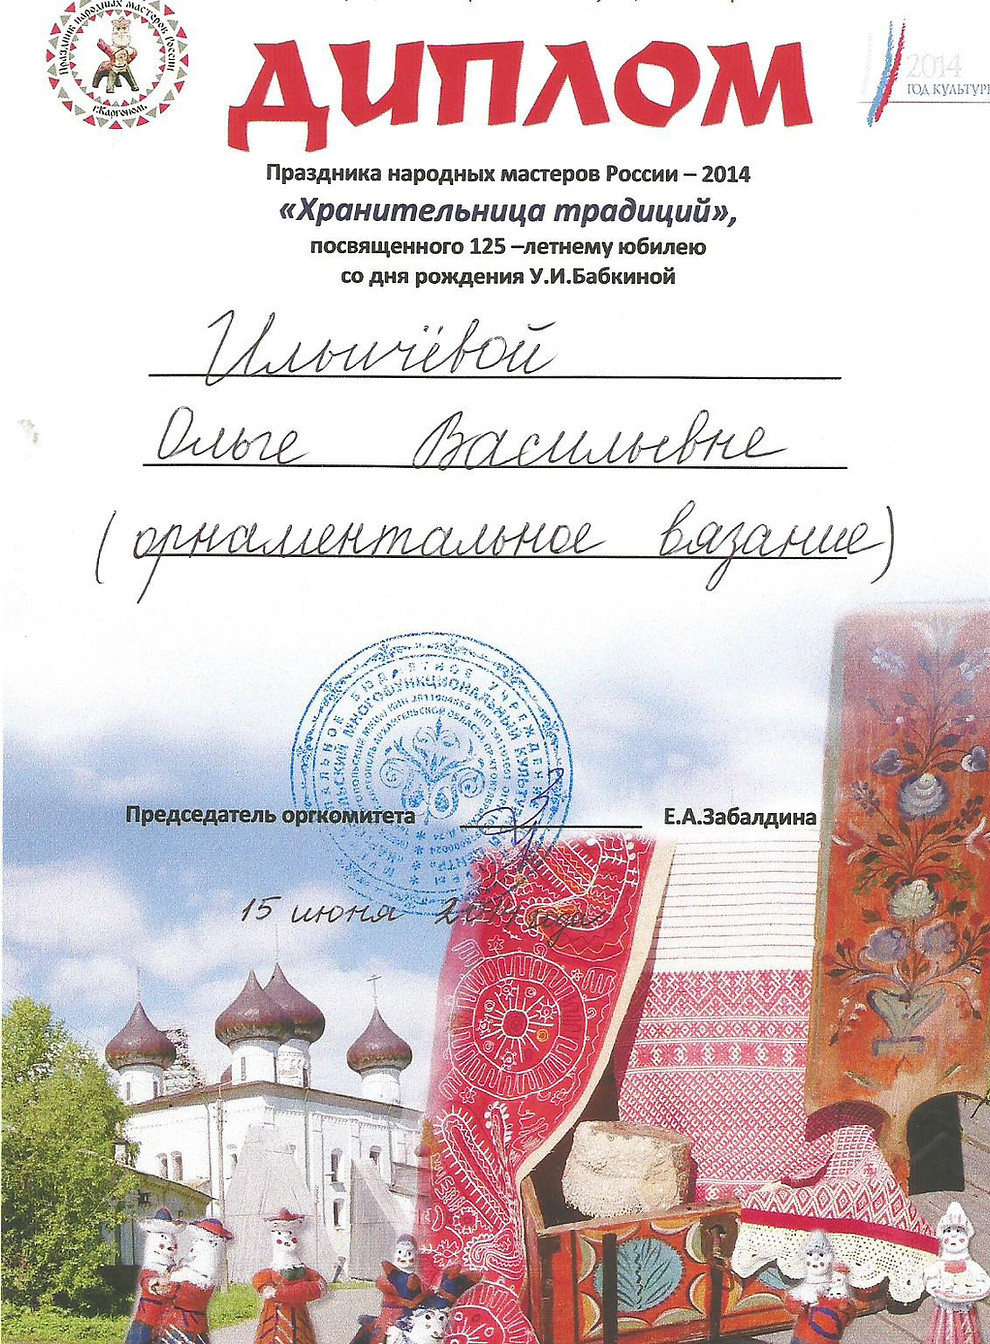 Праздник народных мастеров России
г.Каргополь
ДИПЛОМ
2014
ГОД КУЛЬТУРЫ
Праздника народных мастеров России – 2014
«Хранительница традиций»,
посвященного 125 –летнему юбилею
со дня рождения У.И.Бабкиной
Ильичёвой
Ольге Васильевне
(орнаментальное вязание)
БЮДЖЕТНОЕ УЧРЕЖДЕН
МНОГОФУНКЦИОНАЛЬНЫЙ
Председатель оргкомитета Е.А.Забалдина
15 июня 2014 года